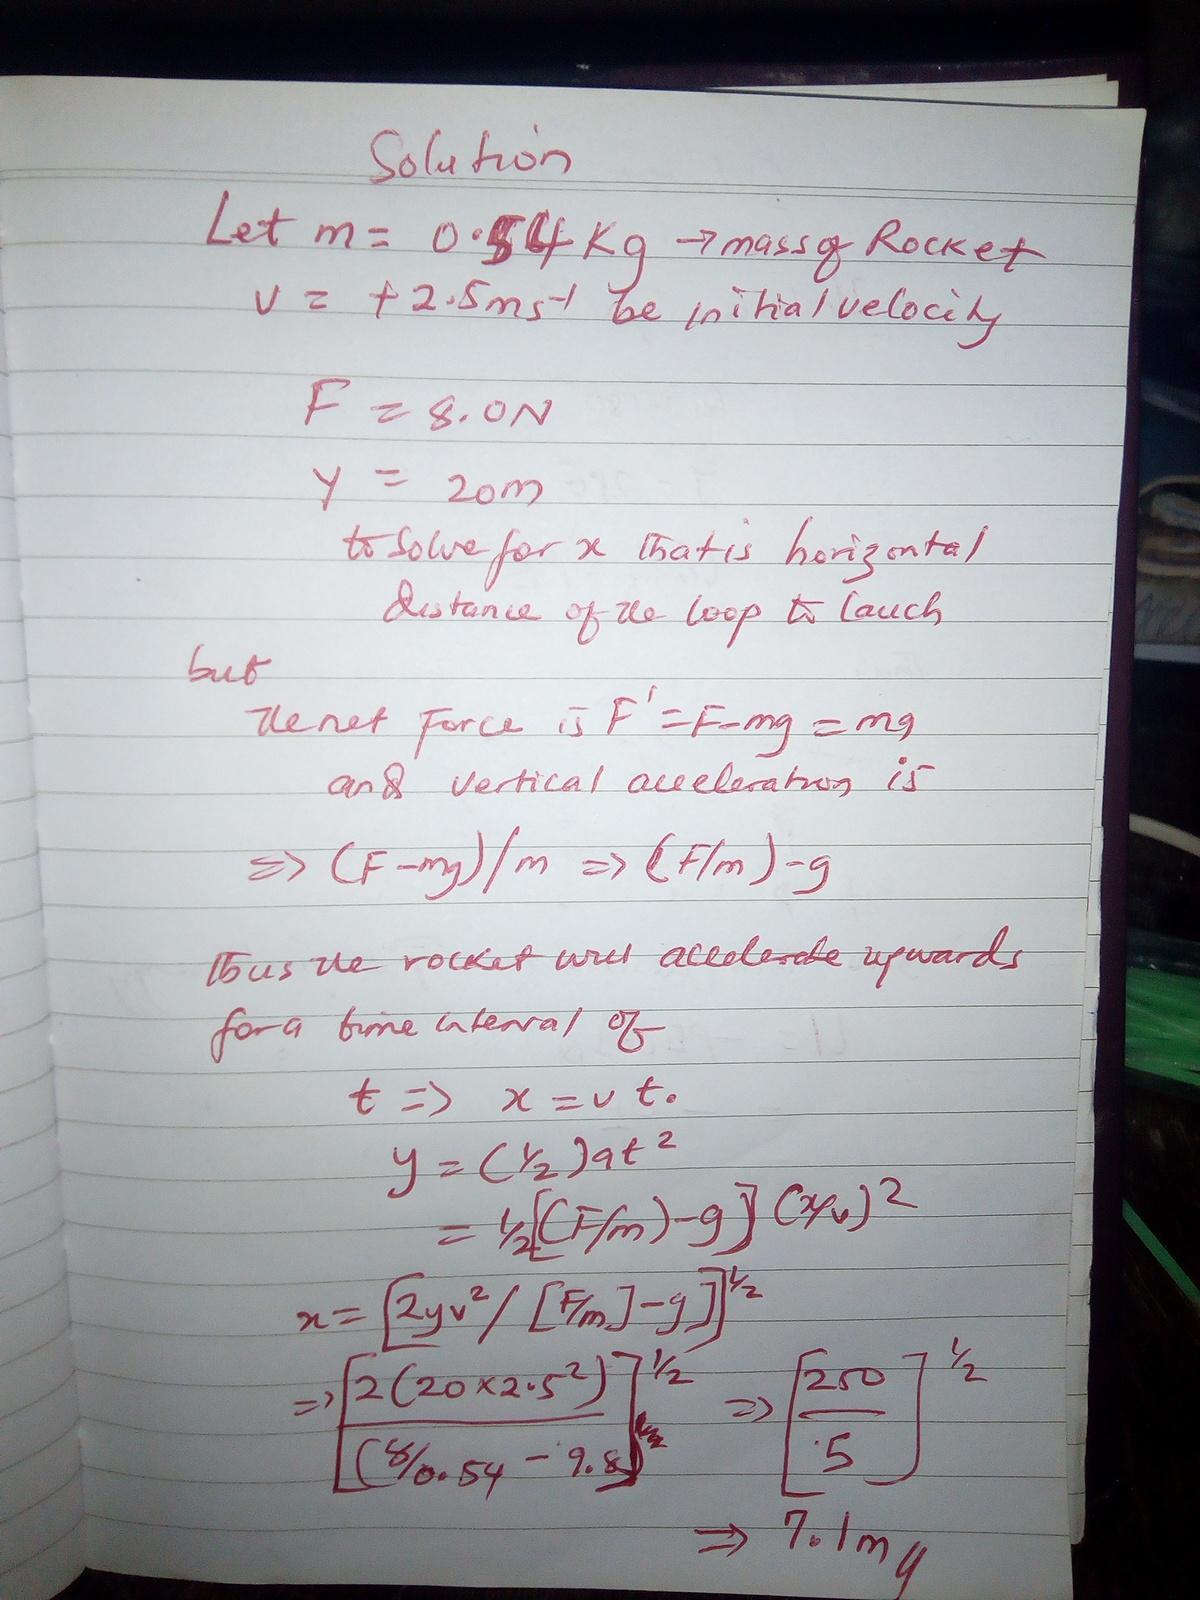 Solution
Let m = 0.54 Kg → mass of Rocket
v = +2.5ms⁻¹ be initial velocity
F = 8.0N
y = 20m
to solve for x that is horizontal
distance of the loop to lauch
but
the net Force is F' = F-mg = mg
and vertical acceleration is
=> (F-mg)/m => (F/m)-g
thus the rocket will accelerate upwards
for a time interval of
t => x = vt.
y = (1/2)at²
= 1/2[(F/m)-g] (x/v)²
x = [2yv²/ [F/m]-g]]^1/2
=> [2(20x2.5²) / (8/0.54 - 9.8)]^1/2 => [250 / 5]^1/2
=> 7.1m